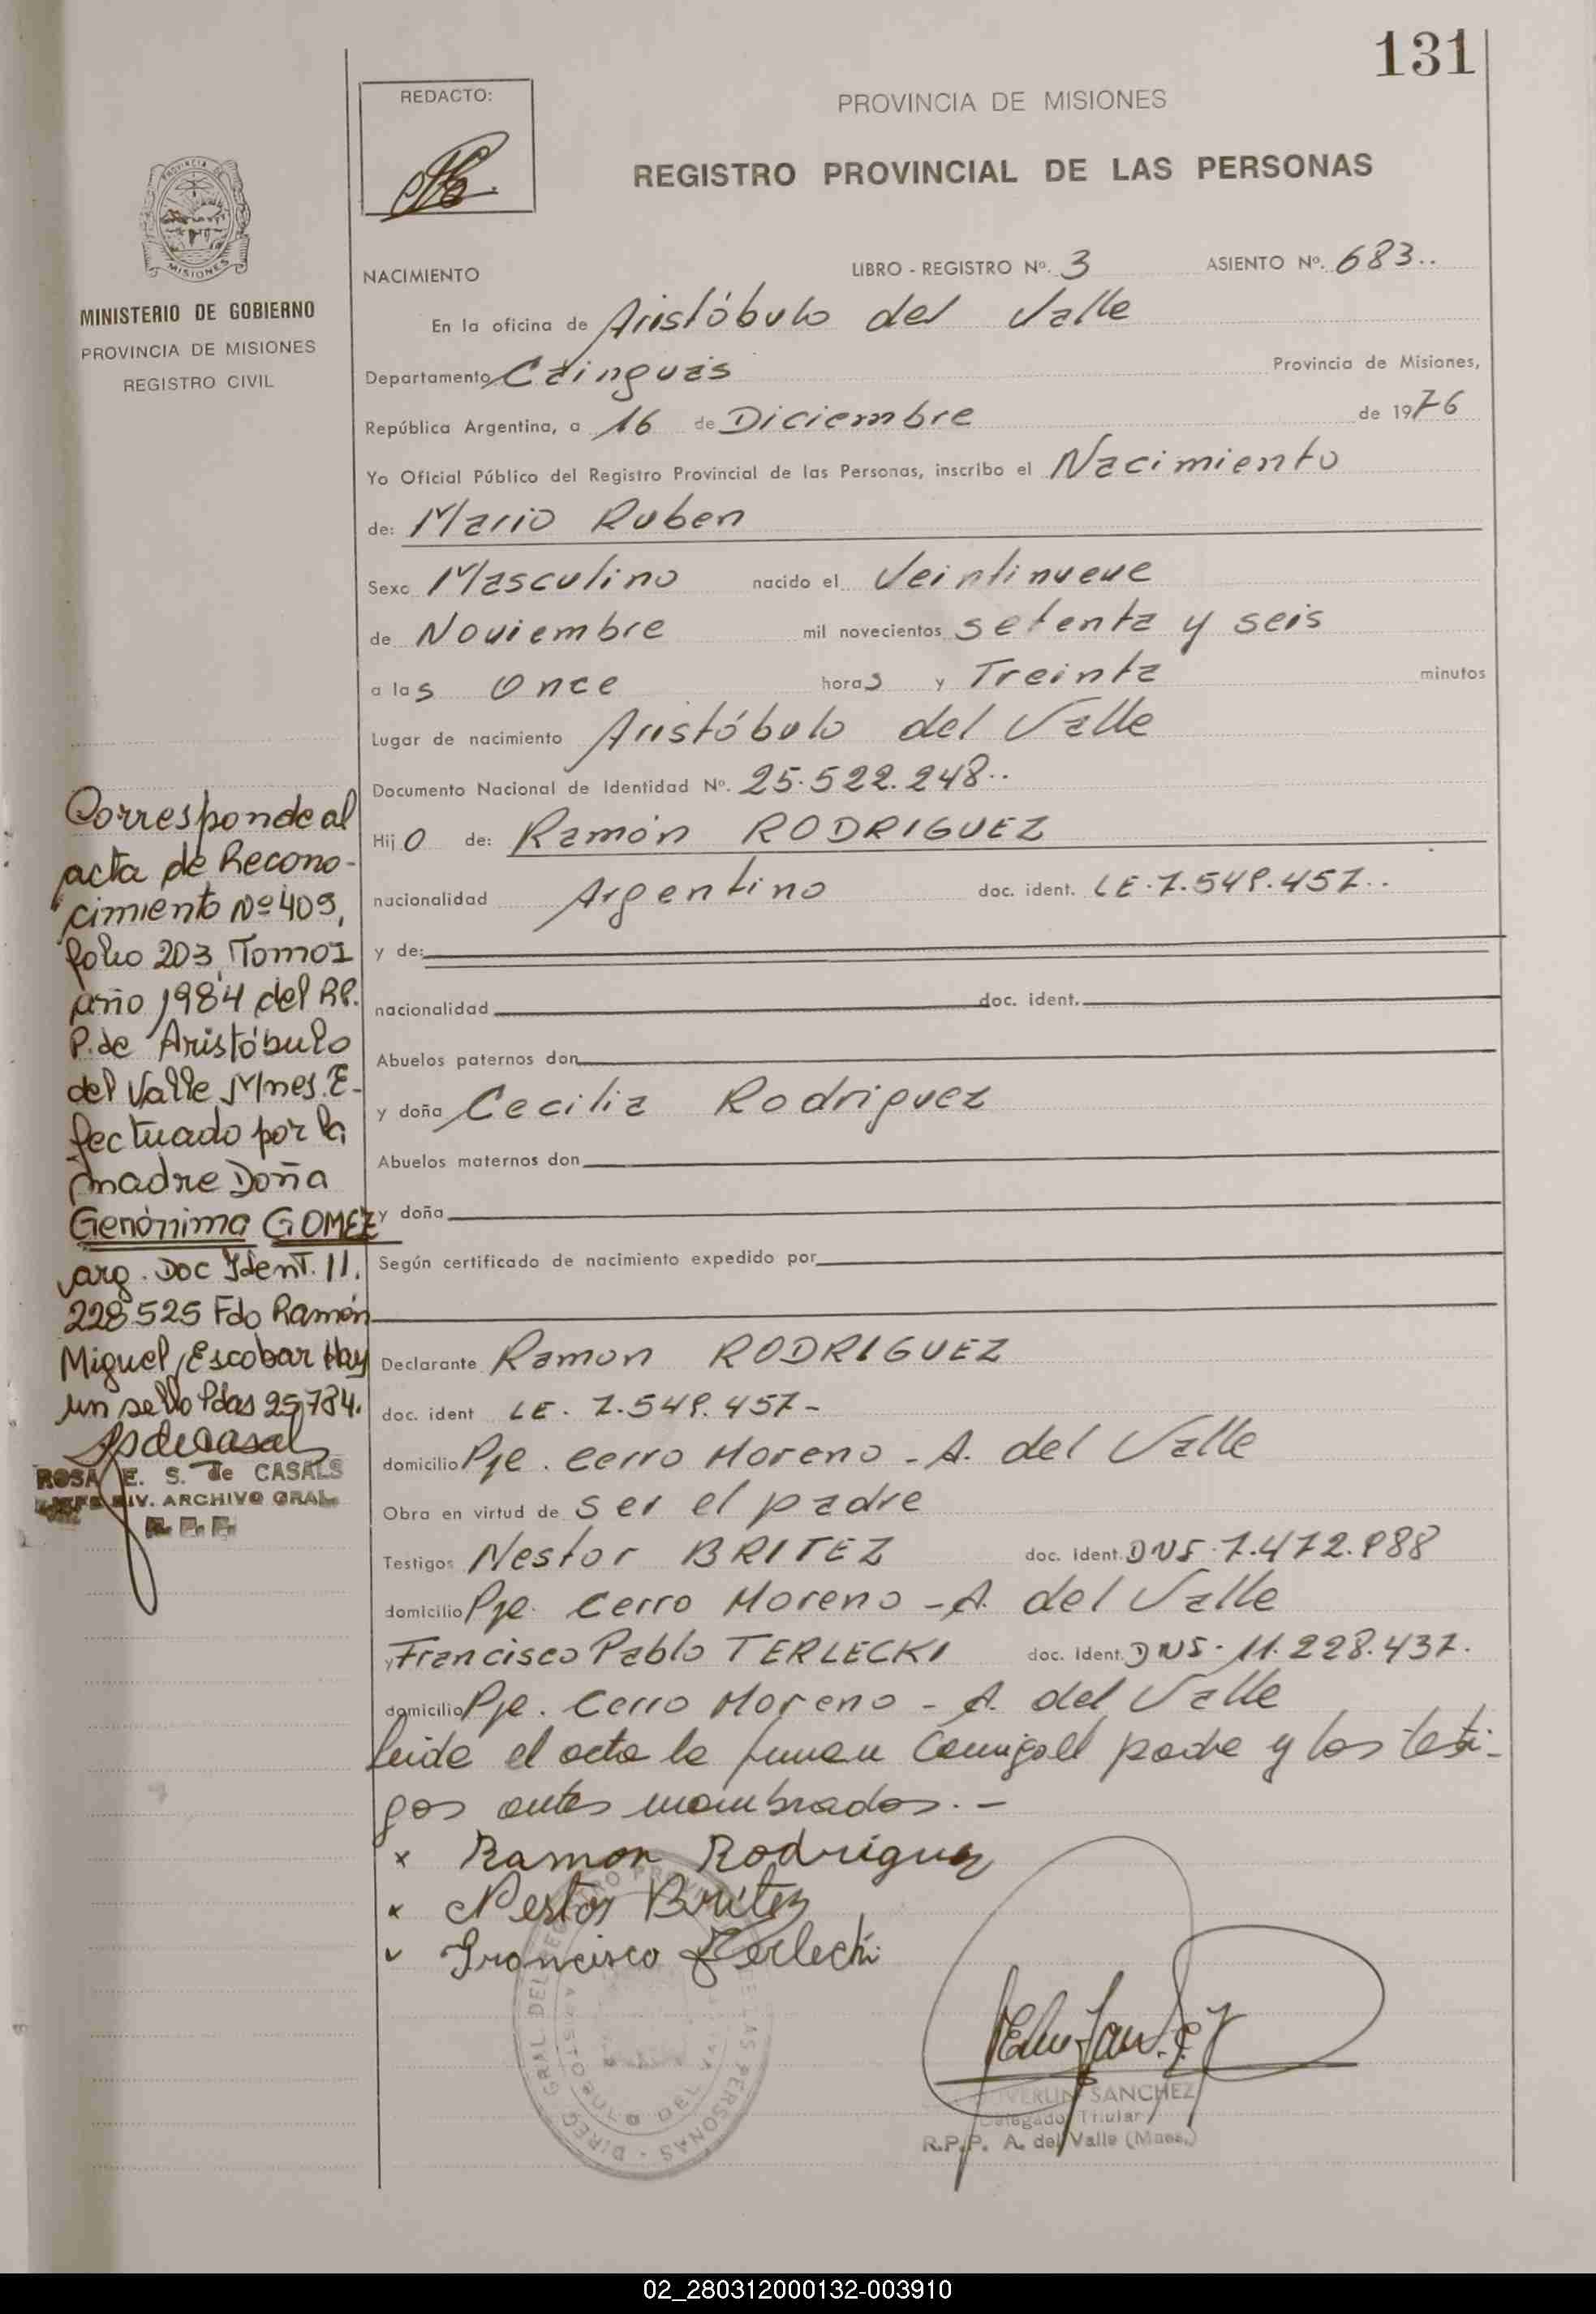 131
REDACTO:
PROVINCIA DE MISIONES
REGISTRO PROVINCIAL DE LAS PERSONAS
PROVINCIA DE
MISIONES
MINISTERIO DE GOBIERNO
PROVINCIA DE MISIONES
REGISTRO CIVIL
NACIMIENTO LIBRO - REGISTRO Nº. 3 ASIENTO Nº. 683..
En la oficina de Aristóbulo del Valle
Departamento Cainguás Provincia de Misiones,
República Argentina, a 16 de Diciembre de 1976
Yo Oficial Público del Registro Provincial de las Personas, inscribo el Nacimiento
de: Mario Ruben
Sexo Masculino nacido el Veintinueve
de Noviembre mil novecientos setenta y seis
a las Once horas y Treinta minutos
Lugar de nacimiento Aristóbulo del Valle
Documento Nacional de Identidad Nº. 25.522.248..
Hijo de: Ramón RODRIGUEZ
nacionalidad Argentino doc. ident. LE.7.549.457..
y de:
nacionalidad doc. ident.
Abuelos paternos don
y doña Cecilia Rodriguez
Abuelos maternos don
y doña
Según certificado de nacimiento expedido por
Declarante Ramon RODRIGUEZ
doc. ident LE. 7.549.457-
domicilio Pje. Cerro Moreno - A. del Valle
Obra en virtud de ser el padre
Testigos Nestor BRITEZ doc. ident. DNI. 7.472.988
domicilio Pje. Cerro Moreno - A. del Valle
y Francisco Pablo TERLECKI doc. ident. DNI. 11.228.437.
domicilio Pje. Cerro Moreno - A. del Valle
Leida el acta la firman conmigo el padre y los testi-
gos antes nombrados.-
x Ramon Rodriguez
x Nestor Britez
v Francisco Terlecki
Corresponde al
acta de Recono-
cimiento Nº 409,
folio 203, Tomo I
año 1984 del RP.
P. de Aristóbulo
del Valle Mnes. E-
fectuado por la
madre Doña
Gerónima GOMEZ
arg. Doc Ident. 11.
228.525 Fdo Ramón
Miguel Escobar Hay
un sello Pdas 25784.
ROSA E. S. de CASALS
JEFE DIV. ARCHIVO GRAL.
R. P. P.
DIREC. GRAL DEL REGISTRO PROV. DE LAS PERSONAS
ARISTOBULO DEL VALLE
SANCHEZ
Delegado Titular
R.P.P. A. del Valle (Mnes.)
02_280312000132-003910